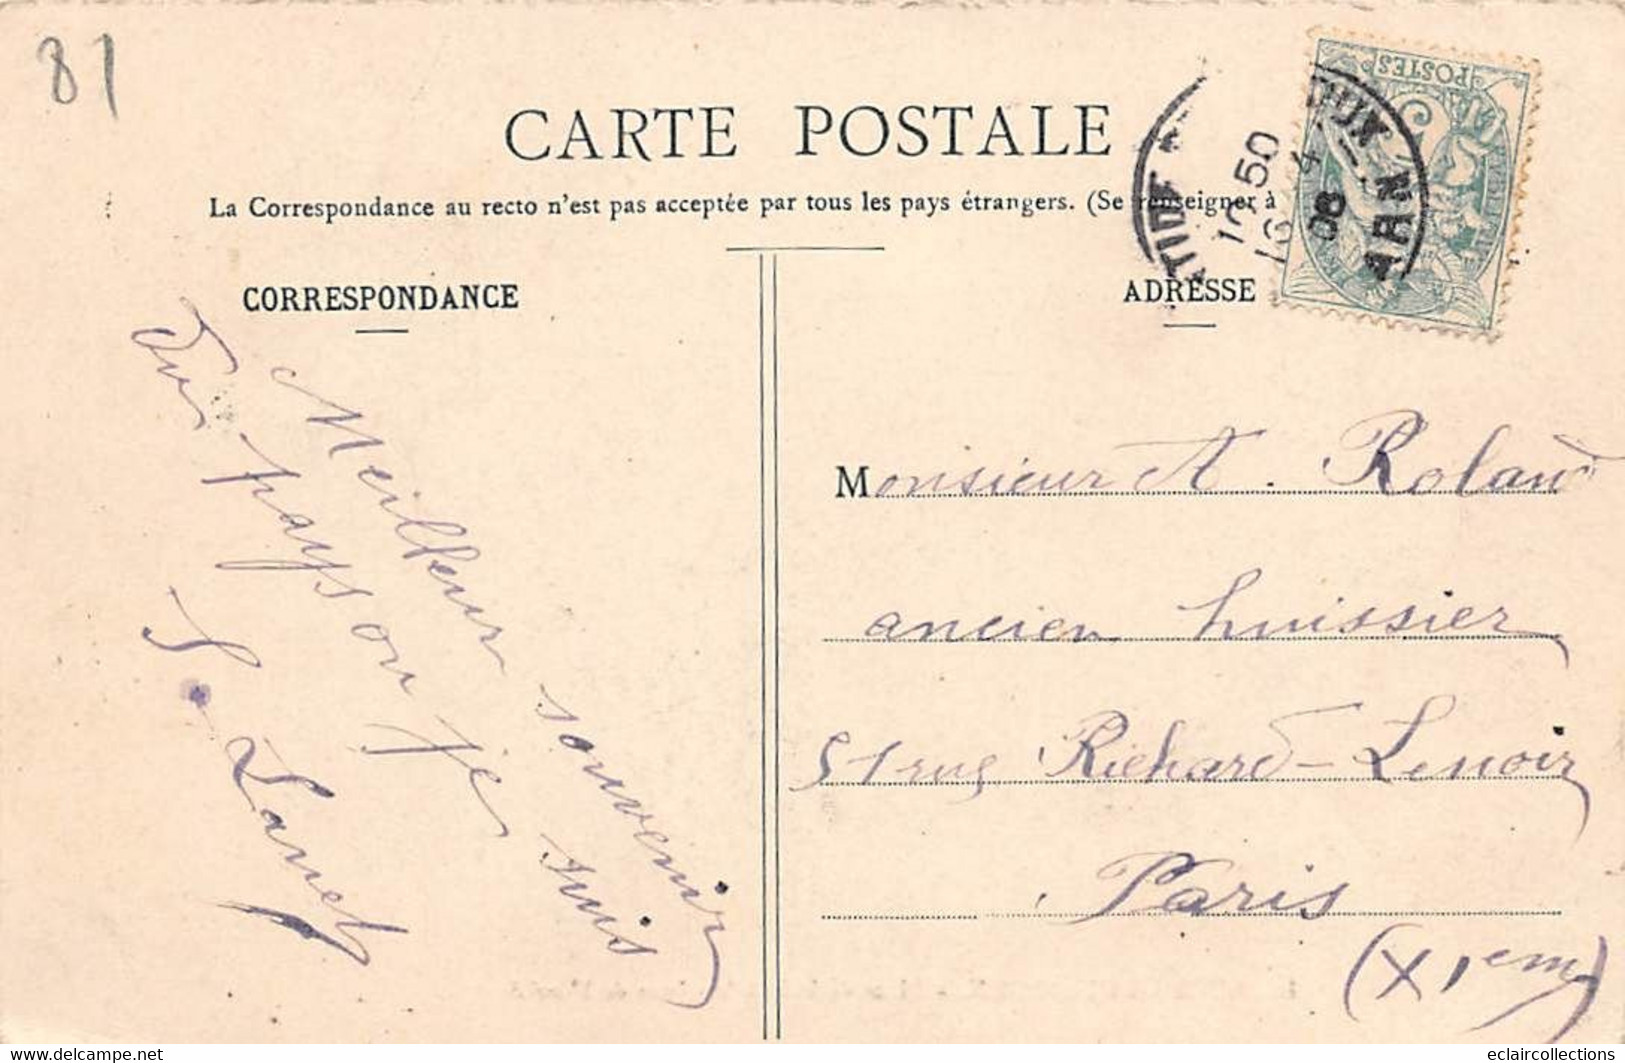 81
CARTE POSTALE
La Correspondance au recto n'est pas acceptée par tous les pays étrangers. (Se renseigner à
CORRESPONDANCE
Meilleur souvenir
Du pays ou je suis
S. Lanet
ADRESSE
POSTES
10 50
08
TARN
Monsieur A. Roland
ancien huissier
51 rue Richard-Lenoir
Paris
(XIem)
eclaircollections
www.delcampe.net